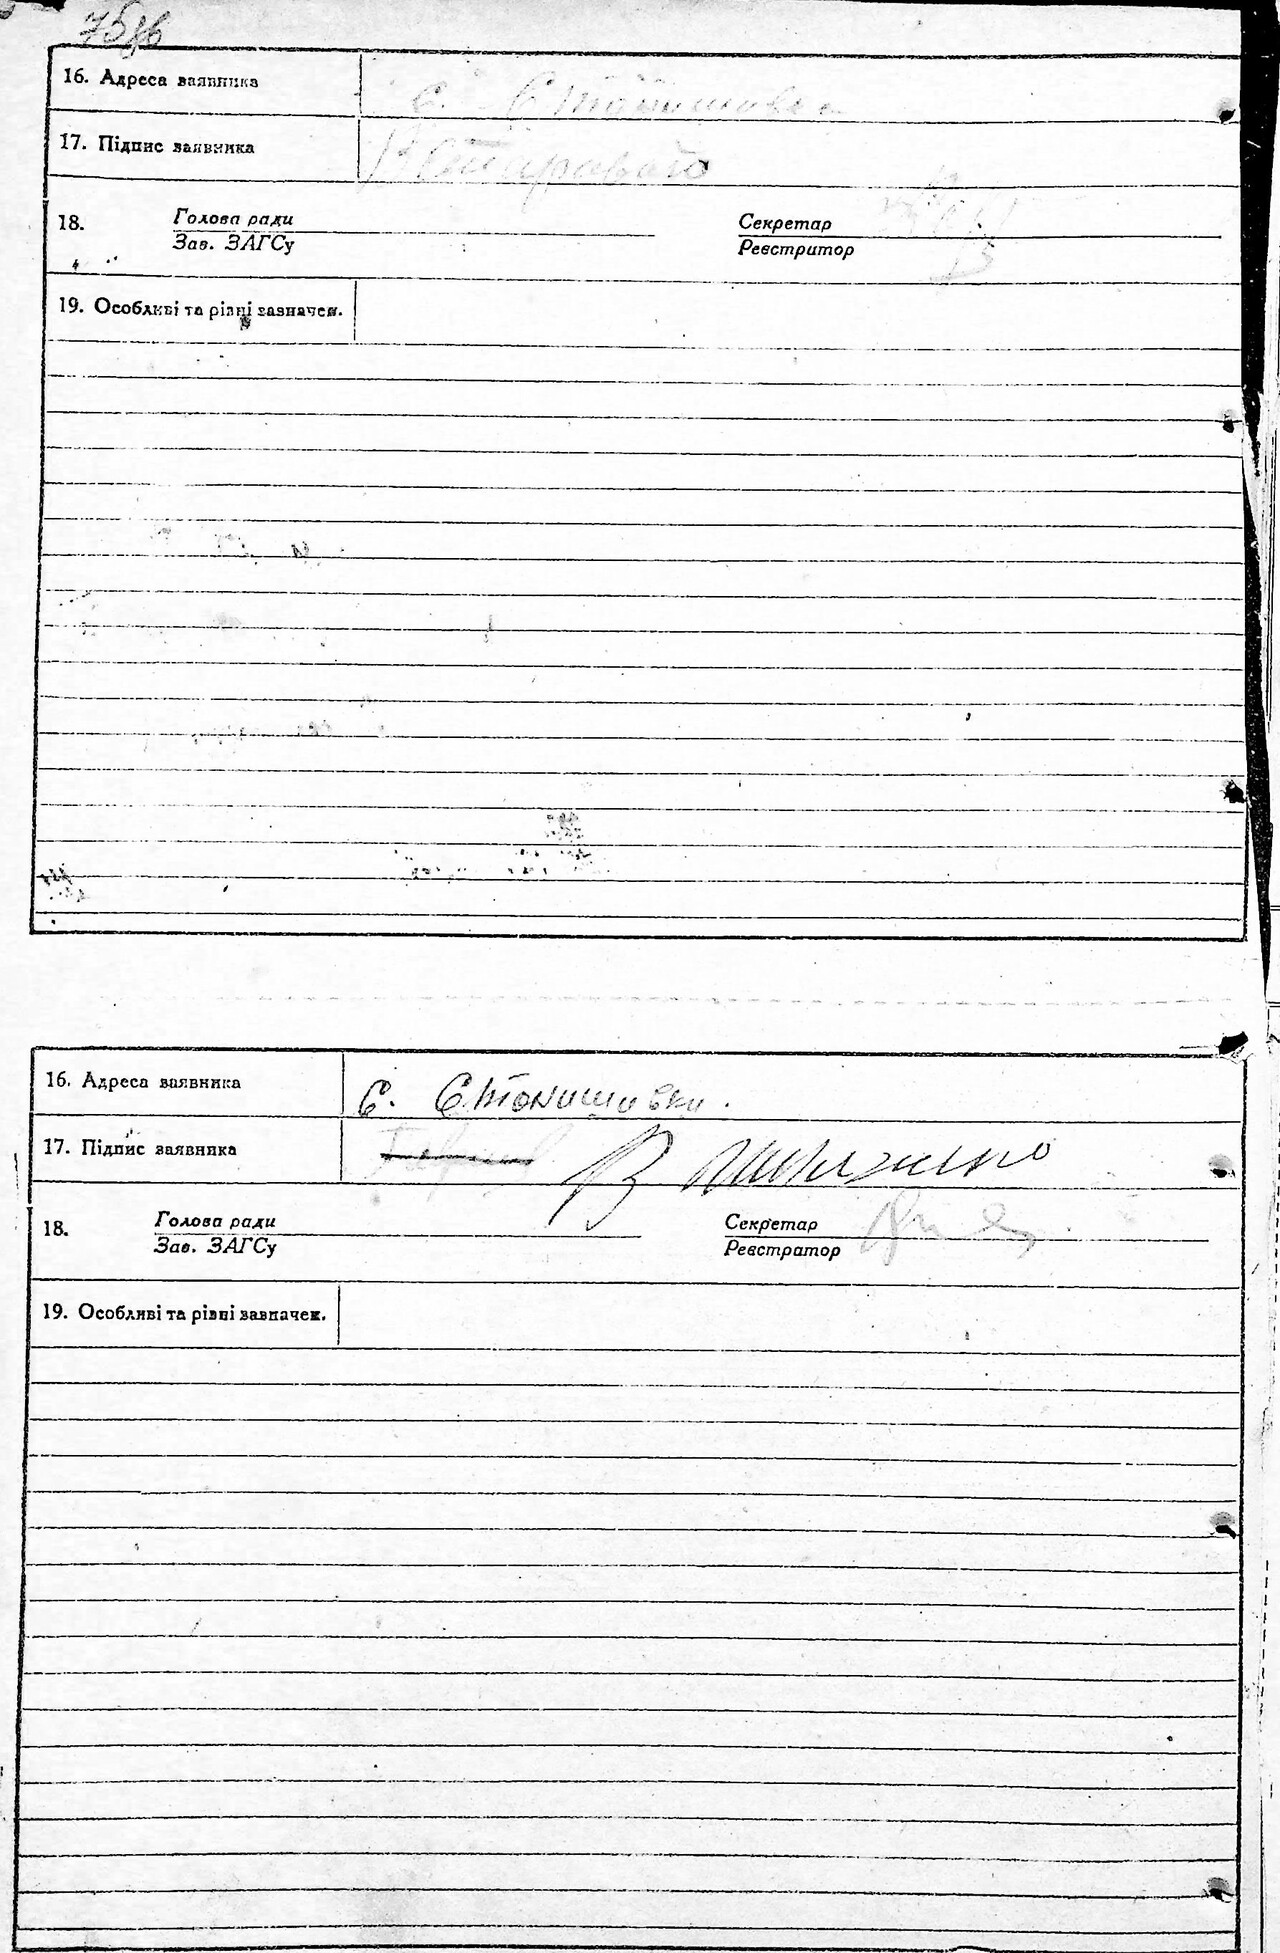 16. Адреса заявника
с. Станишовка
17. Підпис заявника
18. Голова ради Секретар
Зав. ЗАГСу Реєстратор
19. Особливі та різні зазначен.
16. Адреса заявника
с. Станишовка.
17. Підпис заявника В
18. Голова ради Секретар
Зав. ЗАГСу Реєстратор
19. Особливі та різні зазначен.